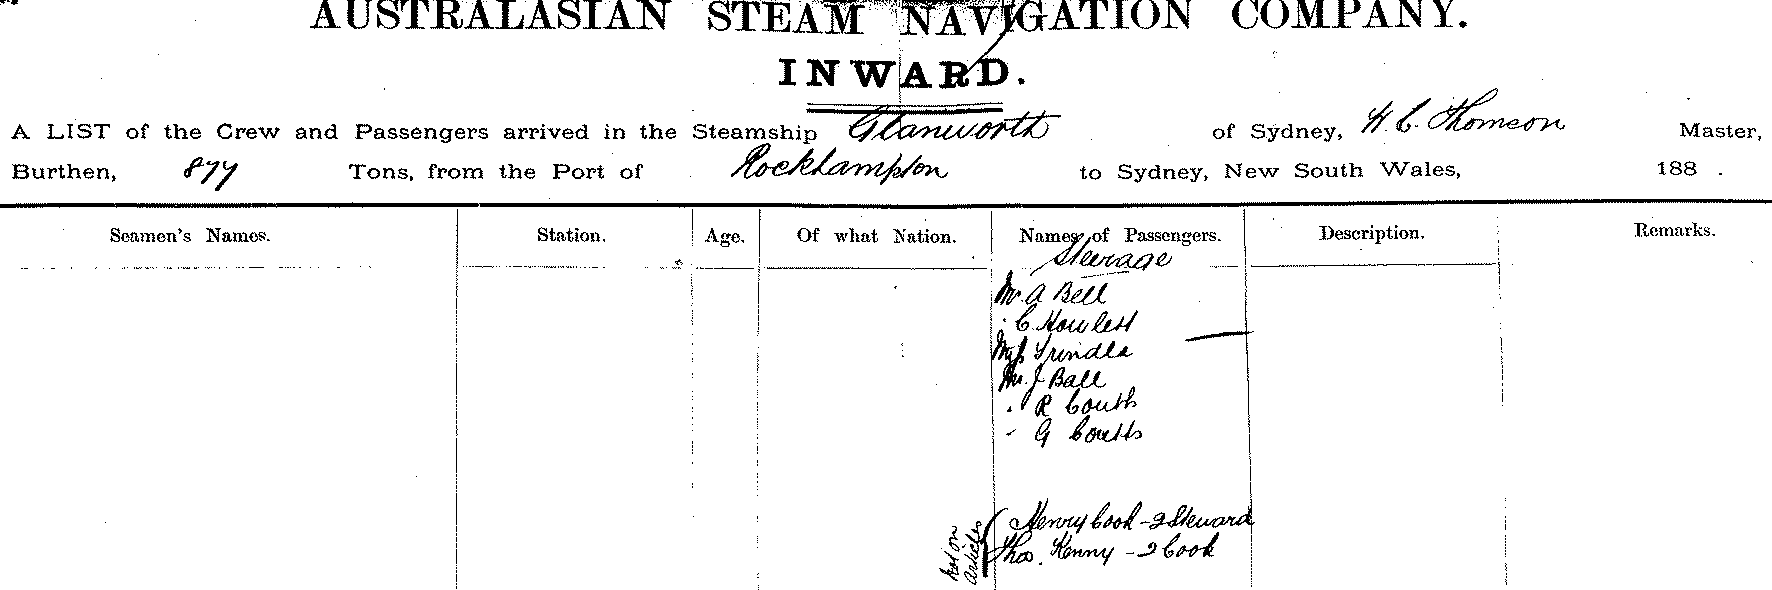 AUSTRALASIAN STEAM NAVIGATION COMPANY.
INWARD.
A LIST of the Crew and Passengers arrived in the Steamship Glanworth of Sydney, H. C. Thomson Master,
Burthen, 877 Tons, from the Port of Rockhampton to Sydney, New South Wales, 188 .
Seamen's Names. Station. Age. Of what Nation. Names of Passengers. Description. Remarks.
Steerage
Mr. A Bell
" C Howlett
Miss Trindle
Mr. J Ball
" R Coutts
" G Coutts
Not on Articles
Henry Cook - 2 Steward
Thos. Kenny - 2 Cook